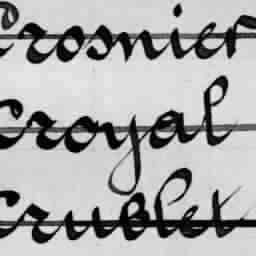 Crosnier
Croyal
Crublet